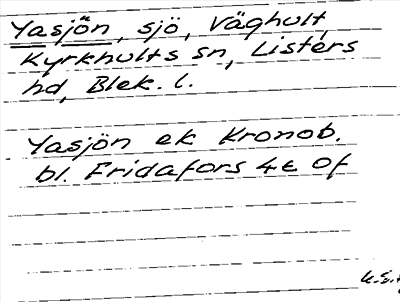 Yasjön, sjö, Väghult,
Kyrkhults sn, Listers
hd, Blek. l.
Yasjön ek Kronob.
bl. Fridafors 4c Of